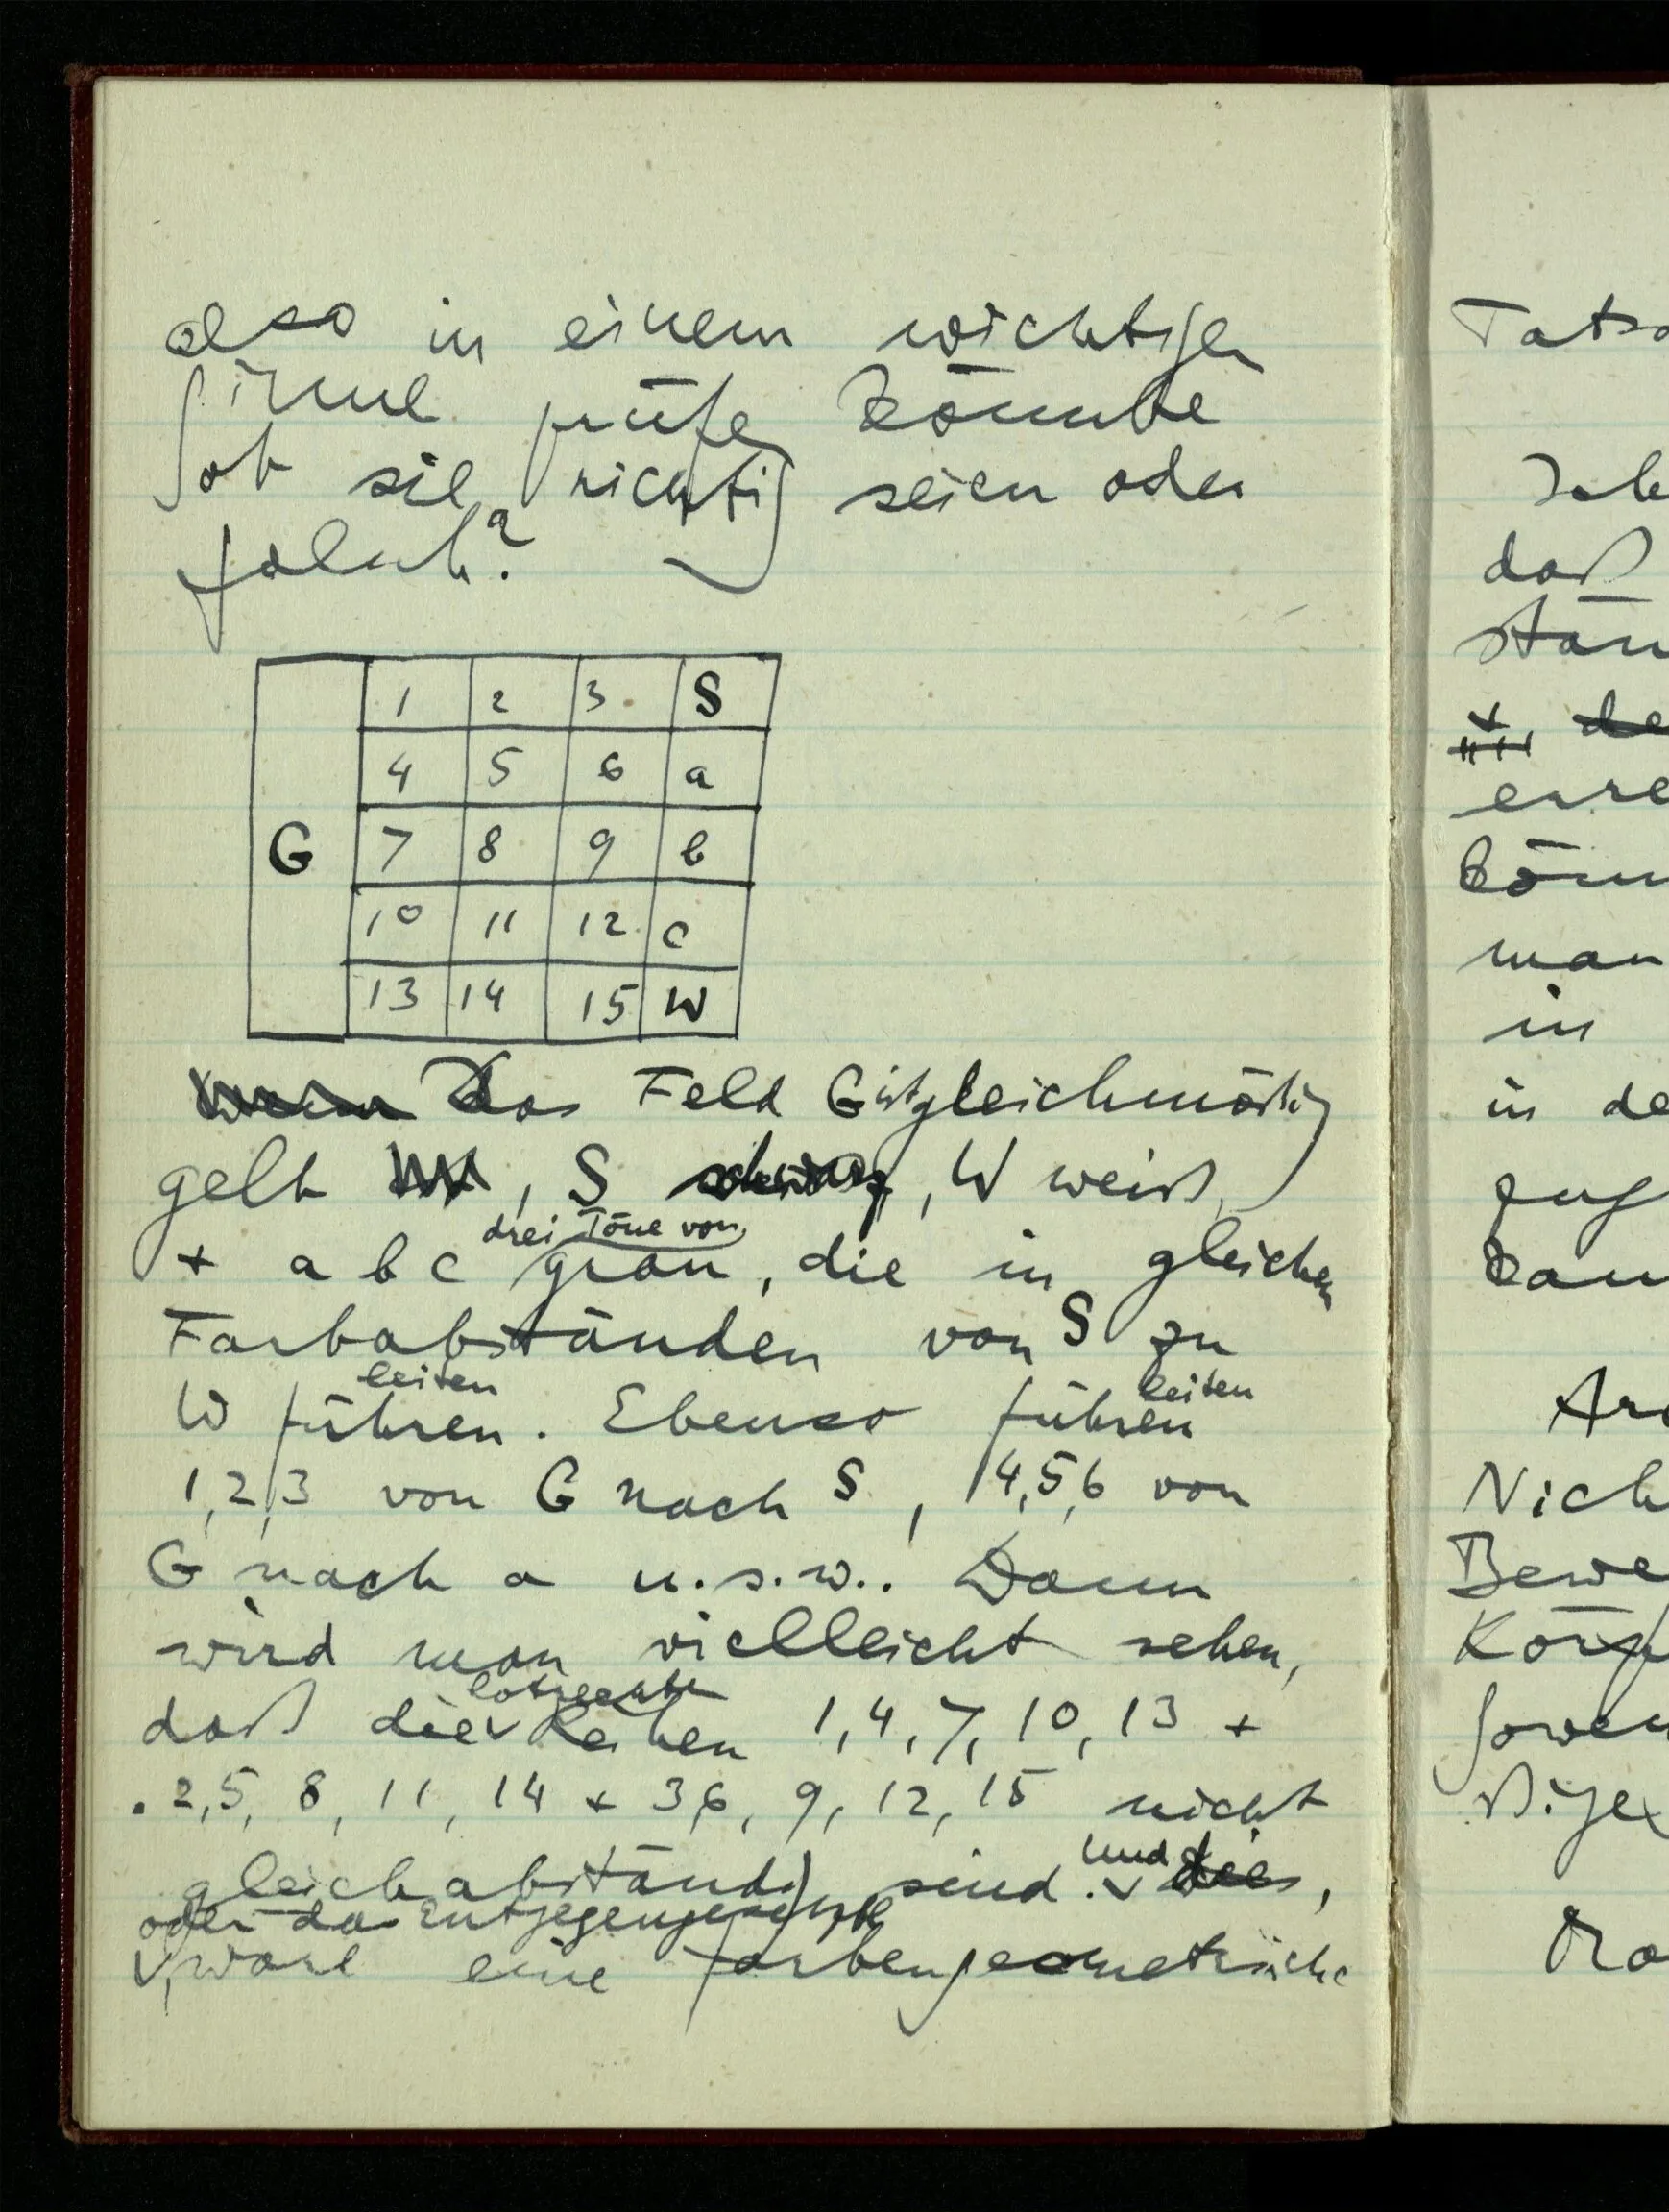 also in einem wichtigen
Sinne prüfen könnte
ob sie richtig seien oder
falsch?
1 2 3 S
4 5 6 a
G 7 8 9 b
10 11 12 c
13 14 15 W
Wenn Das Feld G ist gleichmäßig
gelb, S schwarz, W weiß,
drei Töne von
+ a b c grau, die in gleichen
Farbabständen von S zu
leiten leiten
W führen. Ebenso führen
1,2,3 von G nach S, 4,5,6 von
G nach a u.s.w.. Dann
wird man vielleicht sehen,
lotrechten
daß die Reihen 1,4,7,10,13 +
2,5,8,11,14 + 3,6,9,12,15 nicht
und
gleichabständig sind. dies,
oder das Entgegengesetzte
, wäre eine farbengeometrische
daß
in
in de